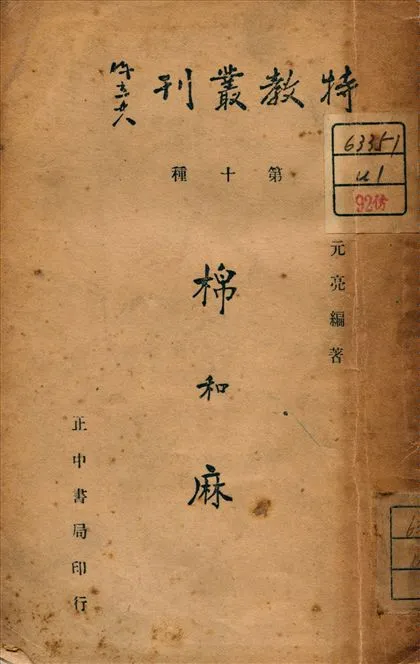 特教叢刊
第十種
63351
U1
9205
元亮編著
棉和麻
正中書局印行